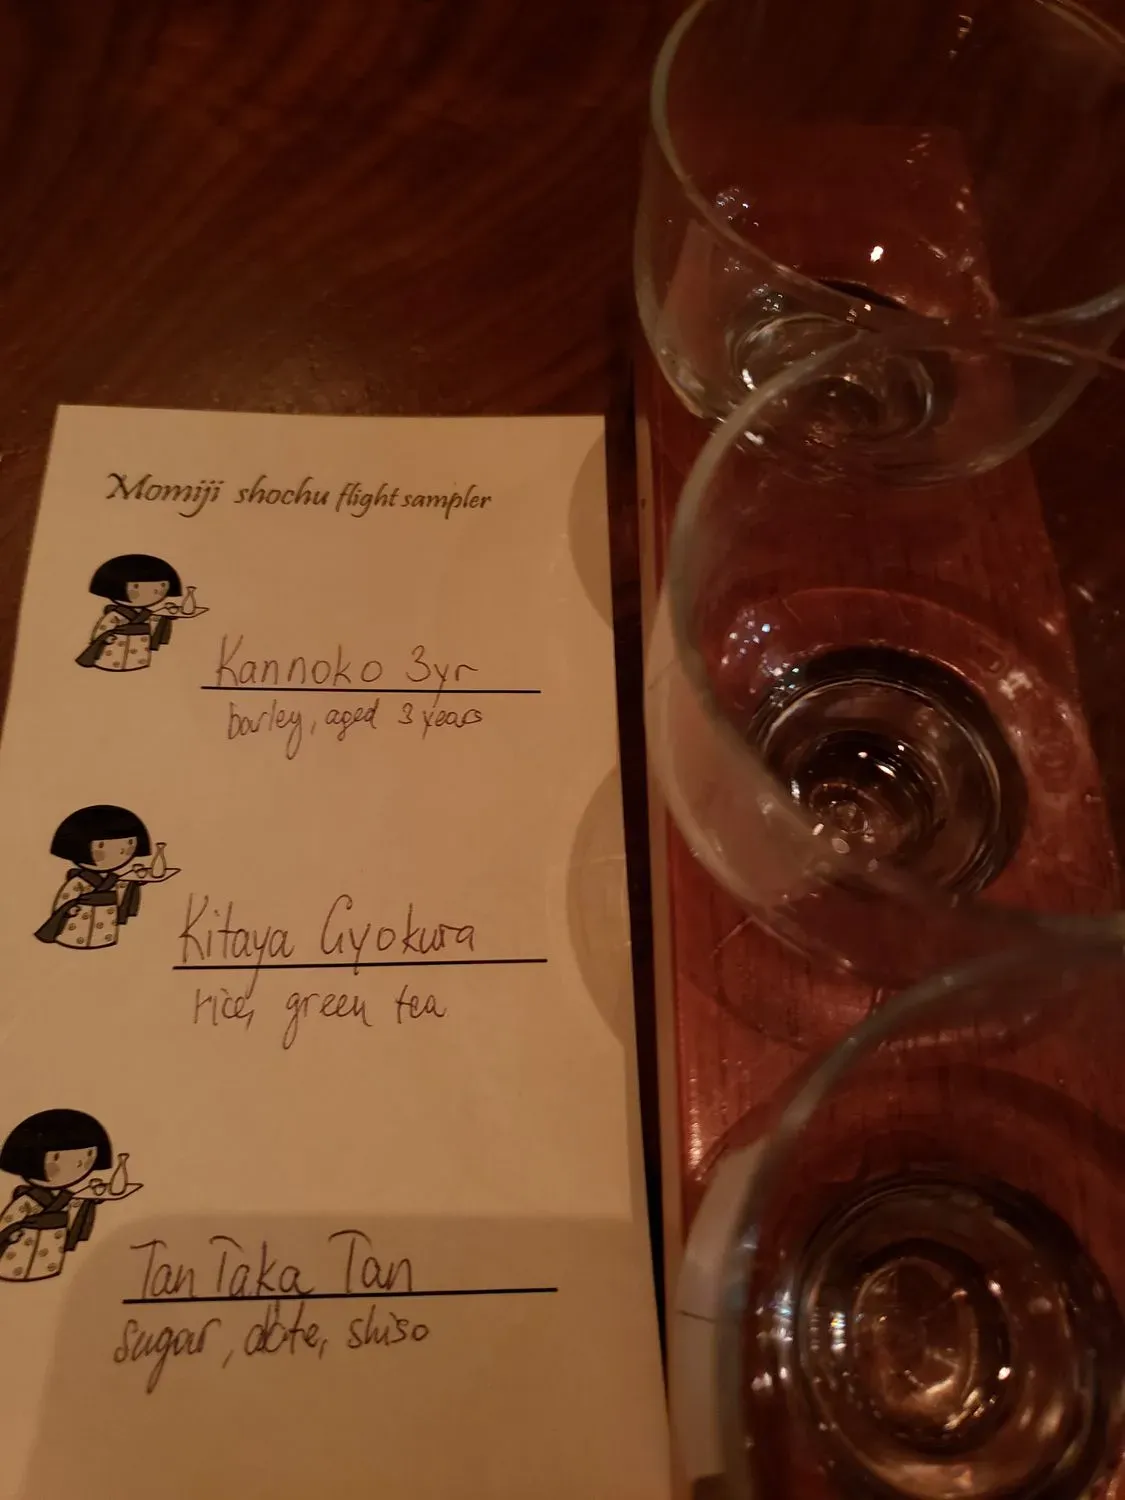 Momiji shochu flight sampler
Kannoko 3yr
barley, aged 3 years
Kitaya Gyokura
rice, green tea
Tan Taka Tan
sugar, date, shiso